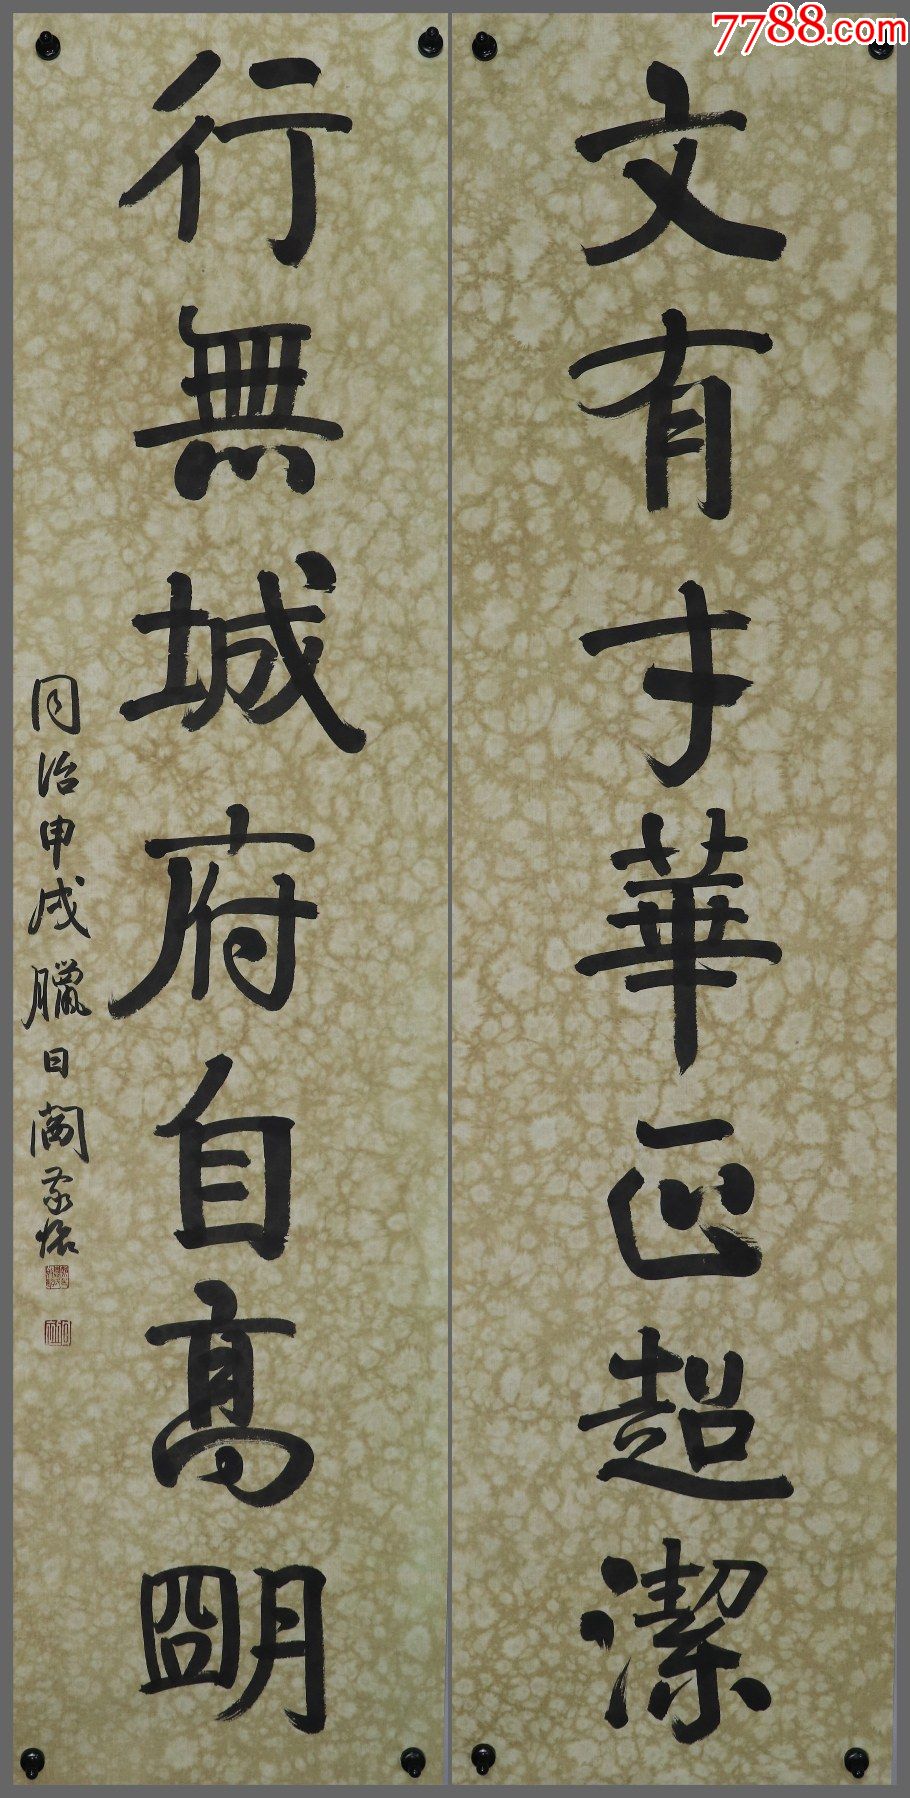 7788.com
文有才華正超潔
行無城府自高明
同治甲戌臘日閻敬銘